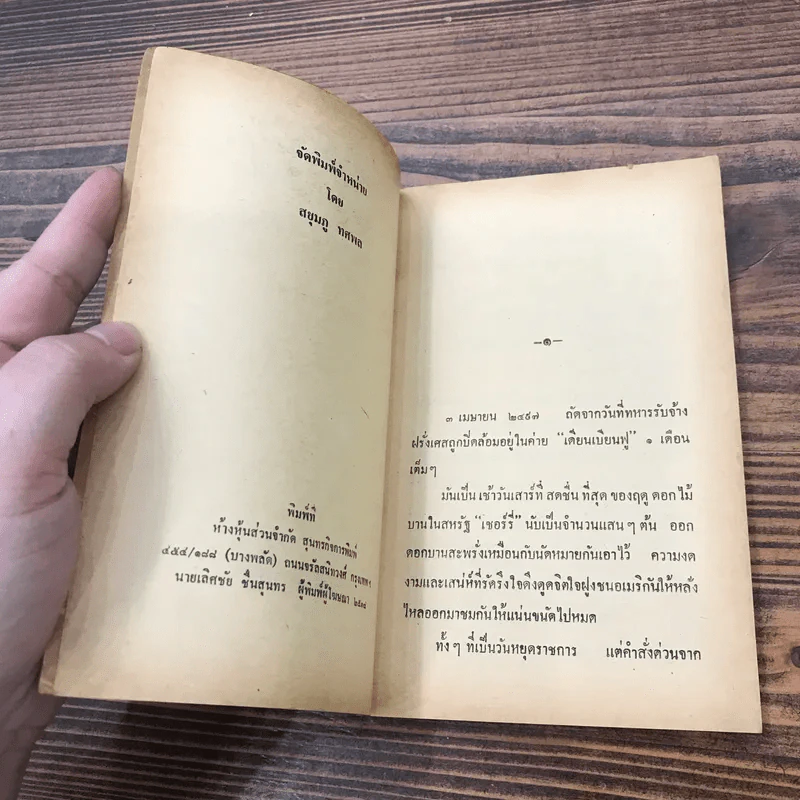 จัดพิมพ์จำหน่าย
โดย
สยุมภู ทศพล
พิมพ์ที่
ห้างหุ้นส่วนจำกัด สุนทรกิจการพิมพ์
๔๕๔/๑๘๘ (บางพลัด) ถนนจรัลสนิทวงศ์ กรุงเทพฯ
นายเลิศชัย ชื่นสุนทร ผู้พิมพ์ผู้โฆษณา
—๑—
๓ เมษายน ๒๔๙๗ ถัดจากวันที่ทหารรับจ้าง
ฝรั่งเศสถูกปิดล้อมอยู่ในค่าย “เดียนเบียนฟู” ๑ เดือน
เต็มๆ
มันเป็น เช้าวันเสาร์ที่ สดชื่น ที่สุด ของฤดู ดอกไม้
บานในสหรัฐ “เชอร์รี่” นับเป็นจำนวนแสนๆ ต้น ออก
ดอกบานสะพรั่งเหมือนกับนัดหมายกันเอาไว้ ความงด
งามและเสน่ห์ที่รัดรึงใจดึงดูดจิตใจฝูงชนอเมริกันให้หลั่ง
ไหลออกมาชมกันให้แน่นขนัดไปหมด
ทั้งๆ ที่เป็นวันหยุดราชการ แต่คำสั่งด่วนจาก